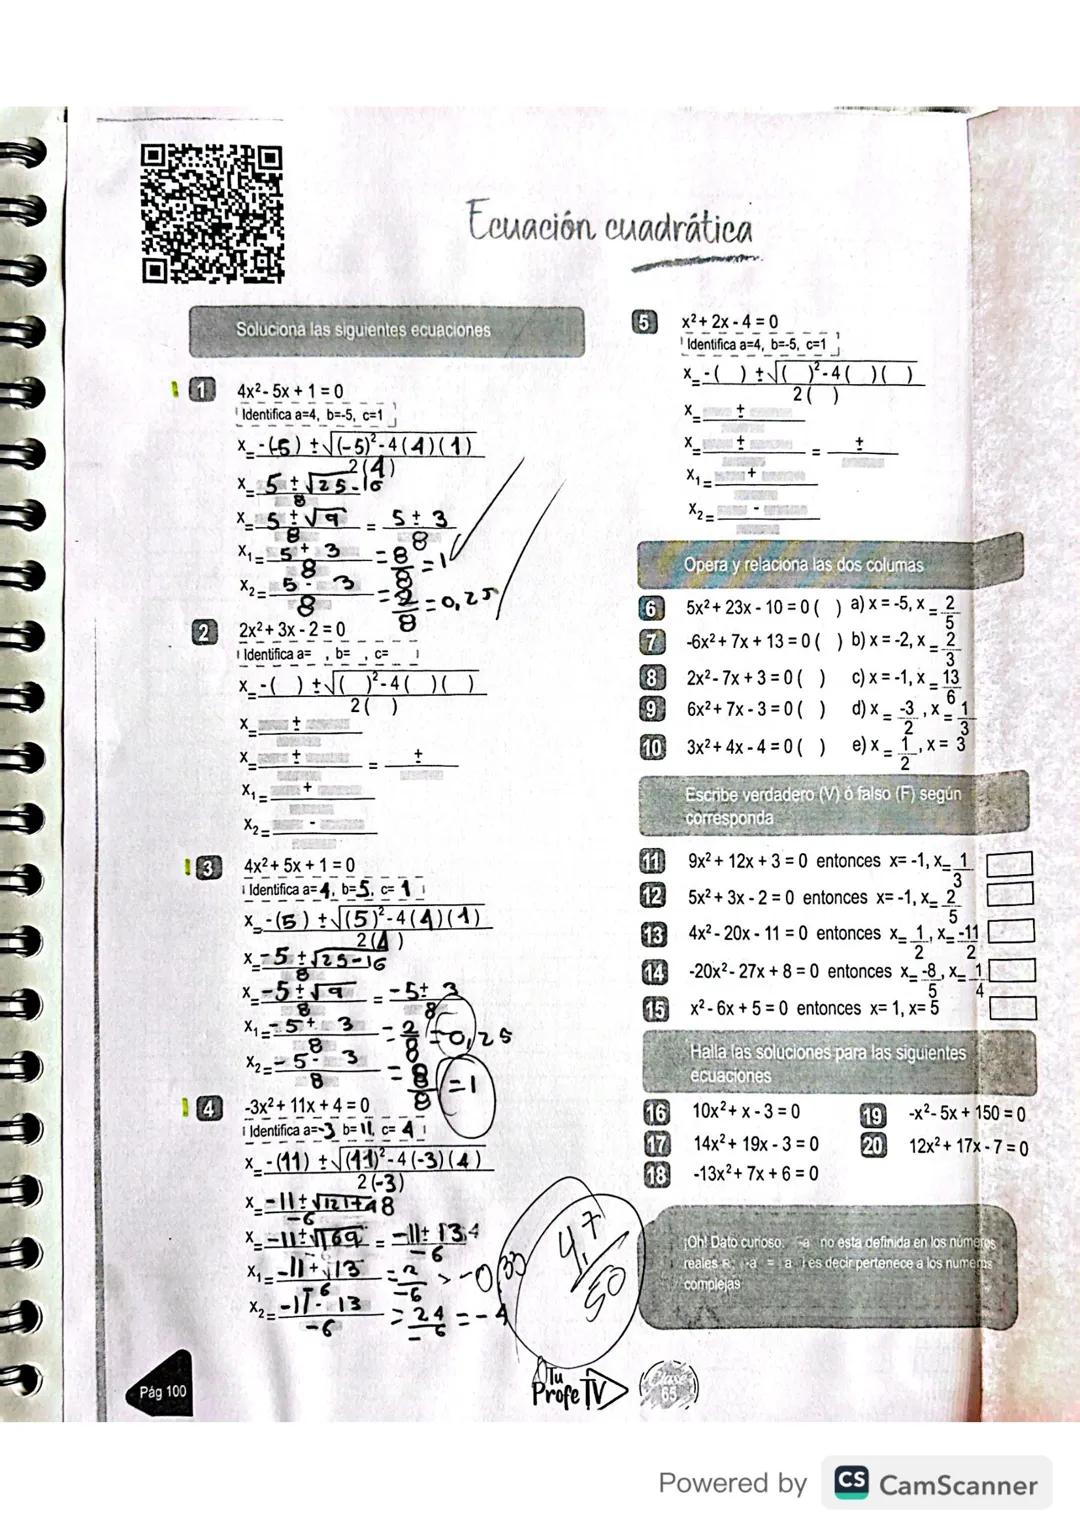 Ecuación cuadrática
Soluciona las siguientes ecuaciones
1 4x²- 5x + 1 = 0
Identifica a=4, b=-5, c=1
x = -(-5) ± √(-5)² - 4(4)(1)
2(4)
x = 5 ± √25-16
8
x = 5 ± √9 = 5 ± 3
8 8
x₁ = 5 + 3 = 8 = 1
8 8
x₂ = 5 - 3 = 2 = 0,25
8 8
2 2x²+ 3x - 2 = 0
Identifica a= , b= , c=
x = -( ) ± √( )² - 4( )( )
2( )
x = ±
x = ± = ±
x₁ = +
x₂ = -
3 4x²+ 5x + 1 = 0
Identifica a=4, b=5, c=1
x = -(5) ± √(5)² - 4(4)(1)
2(4)
x = -5 ± √25-16
8
x = -5 ± √9 = -5 ± 3
8 8
x₁ = -5 + 3 = 2 = 0,25
8 8
x₂ = -5 - 3 = 8 = 1
8 8
4 -3x²+ 11x + 4 = 0
Identifica a=-3 b=11, c= 4
x = -(11) ± √(11)² - 4(-3)(4)
2(-3)
x = -11 ± √121+48
-6
x = -11 ± √169 = -11 ± 13
-6 -6
x₁ = -11 + 13 = 2 > -0,33
-6 -6
x₂ = -11 - 13 = 24 = -4
-6 -6
Pág 100
5 x²+ 2x - 4 = 0
Identifica a=4, b=-5, c=1
x = -( ) ± √( )² - 4( )( )
2( )
x = ±
x = ± = ±
x₁ = +
x₂ = -
Opera y relaciona las dos columas
6 5x²+ 23x - 10 = 0 ( ) a) x = -5, x = 2/5
7 -6x²+ 7x + 13 = 0 ( ) b) x = -2, x = 2/3
8 2x²- 7x + 3 = 0 ( ) c) x = -1, x = 13/6
9 6x²+ 7x - 3 = 0 ( ) d) x = -3/2, x = 1/3
10 3x²+ 4x - 4 = 0 ( ) e) x = 1/2, x = 3
Escribe verdadero (V) ó falso (F) según
corresponda
11 9x²+ 12x + 3 = 0 entonces x= -1, x= 1/3
12 5x²+ 3x - 2 = 0 entonces x= -1, x= 2/5
13 4x²- 20x - 11 = 0 entonces x= 1/2, x= -11/2
14 -20x²- 27x + 8 = 0 entonces x= -8/5, x= 1/4
15 x²- 6x + 5 = 0 entonces x= 1, x= 5
Halla las soluciones para las siguientes
ecuaciones
16 10x²+ x - 3 = 0
17 14x²+ 19x - 3 = 0
18 -13x²+ 7x + 6 = 0
19 -x²- 5x + 150 = 0
20 12x²+ 17x - 7 = 0
¡Oh! Dato curioso, -a no esta definida en los números
reales R; -a = a i es decir pertenece a los numeros
complejas
47
50
Tu
Profe TV
Clase
65
Powered by CS CamScanner